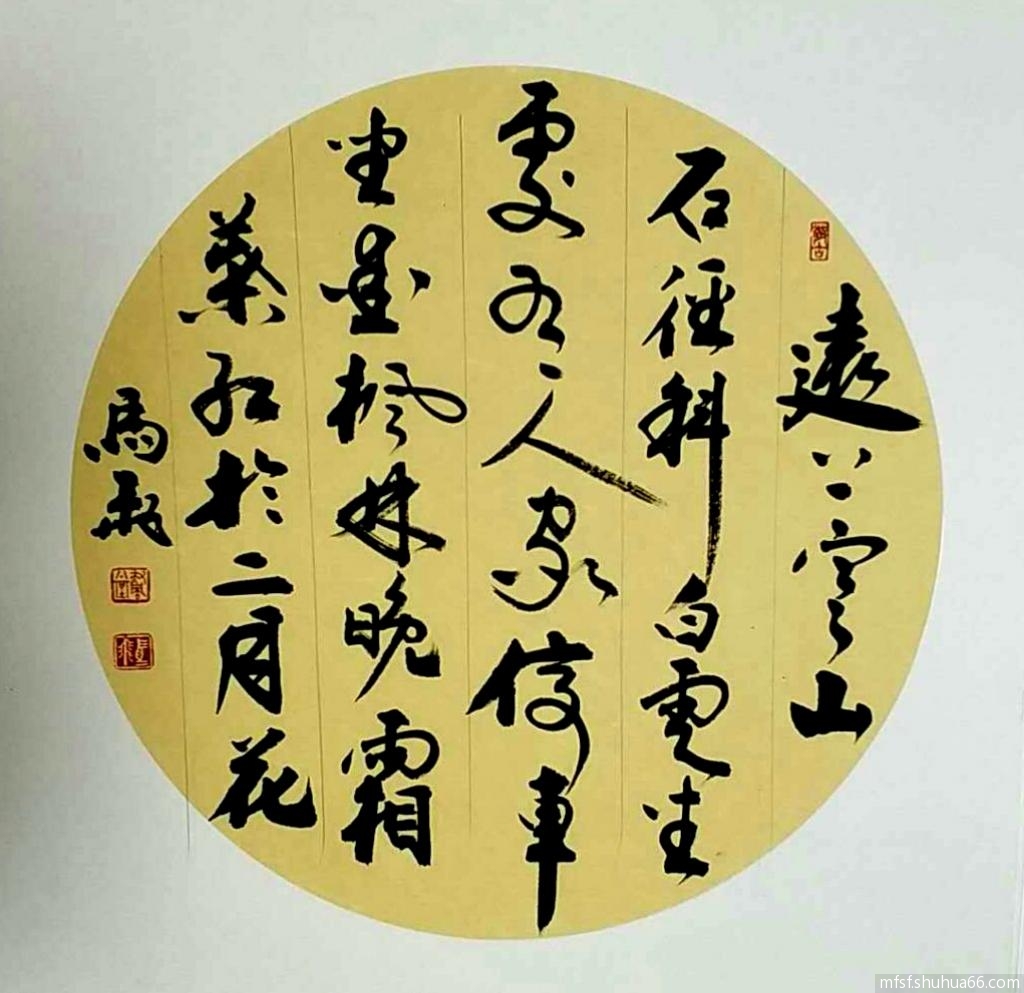 遠上寒山
石徑斜白雲生
處有人家停車
坐愛楓林晚霜
葉紅於二月花
馬
mfsf.shuhua66.com